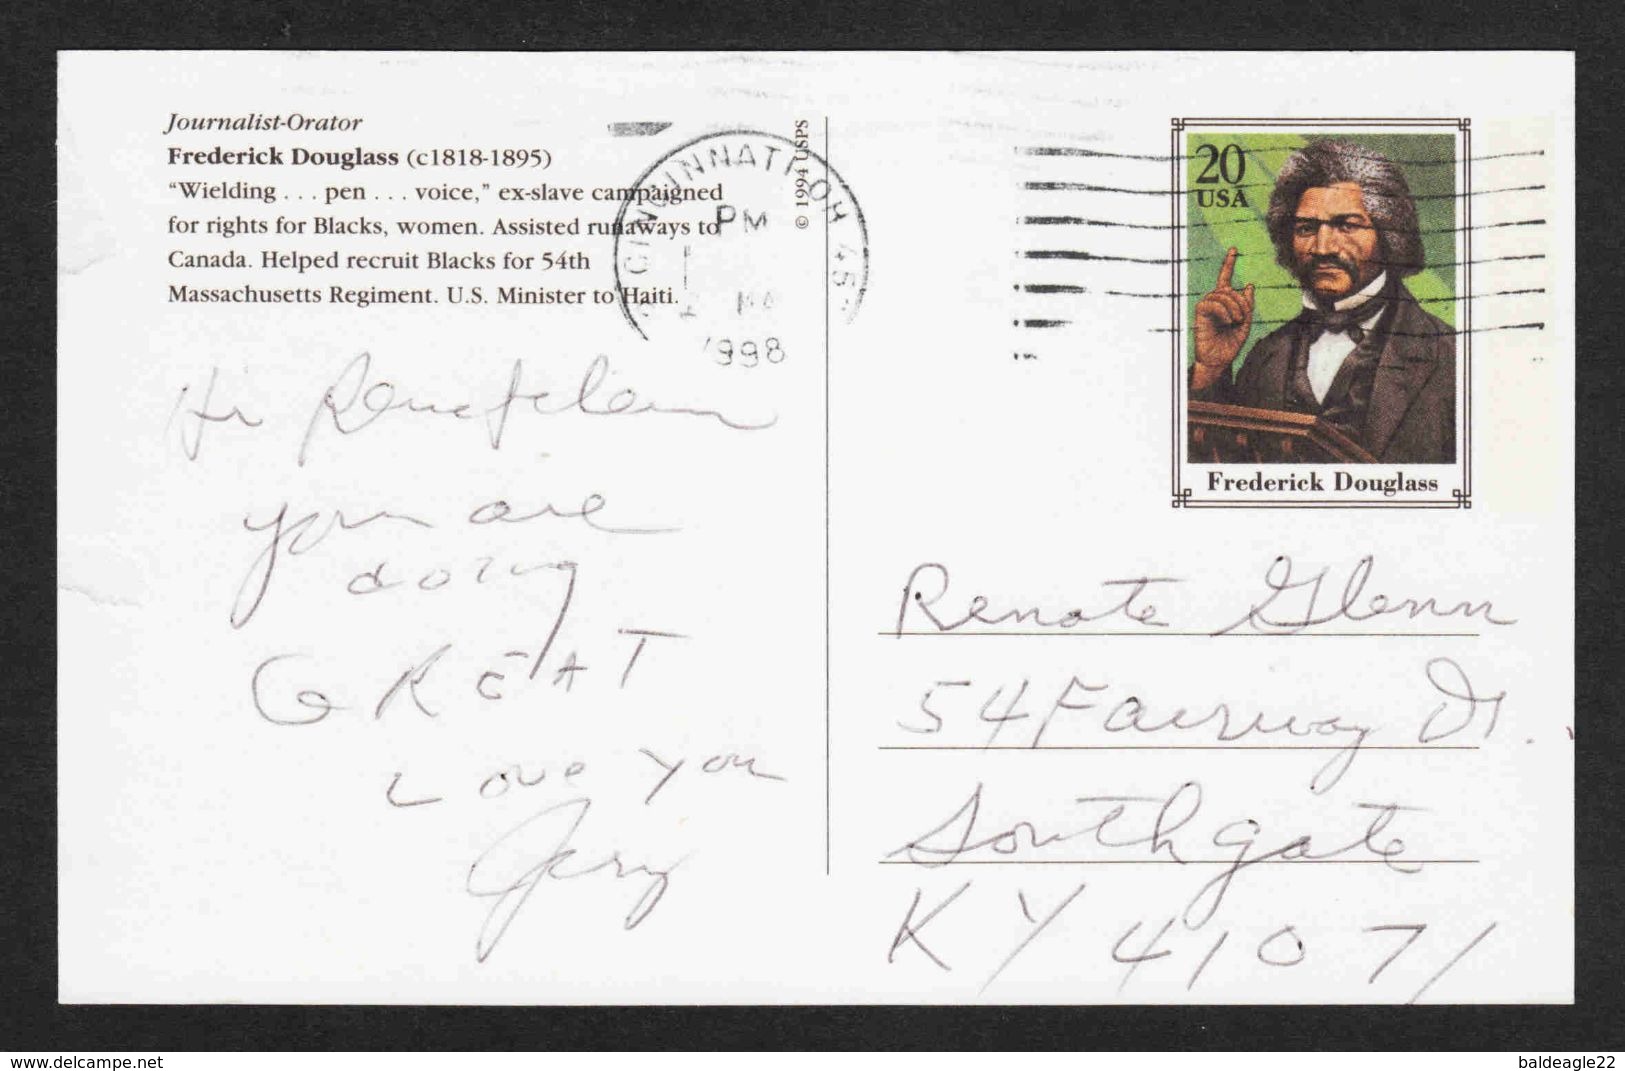 Journalist-Orator
Frederick Douglass (c1818-1895)
“Wielding . . . pen . . . voice,” ex-slave campaigned
for rights for Blacks, women. Assisted runaways to
Canada. Helped recruit Blacks for 54th
Massachusetts Regiment. U.S. Minister to Haiti.
© 1994 USPS
CINCINNATI OH 45
PM
1998
20
USA
Frederick Douglass
Hi
you are
doing
GREAT
Love you
Jerry
Renate Glenn
54 Fairway Dr.
Southgate
KY 41071
delcampe.net
baldeagle22